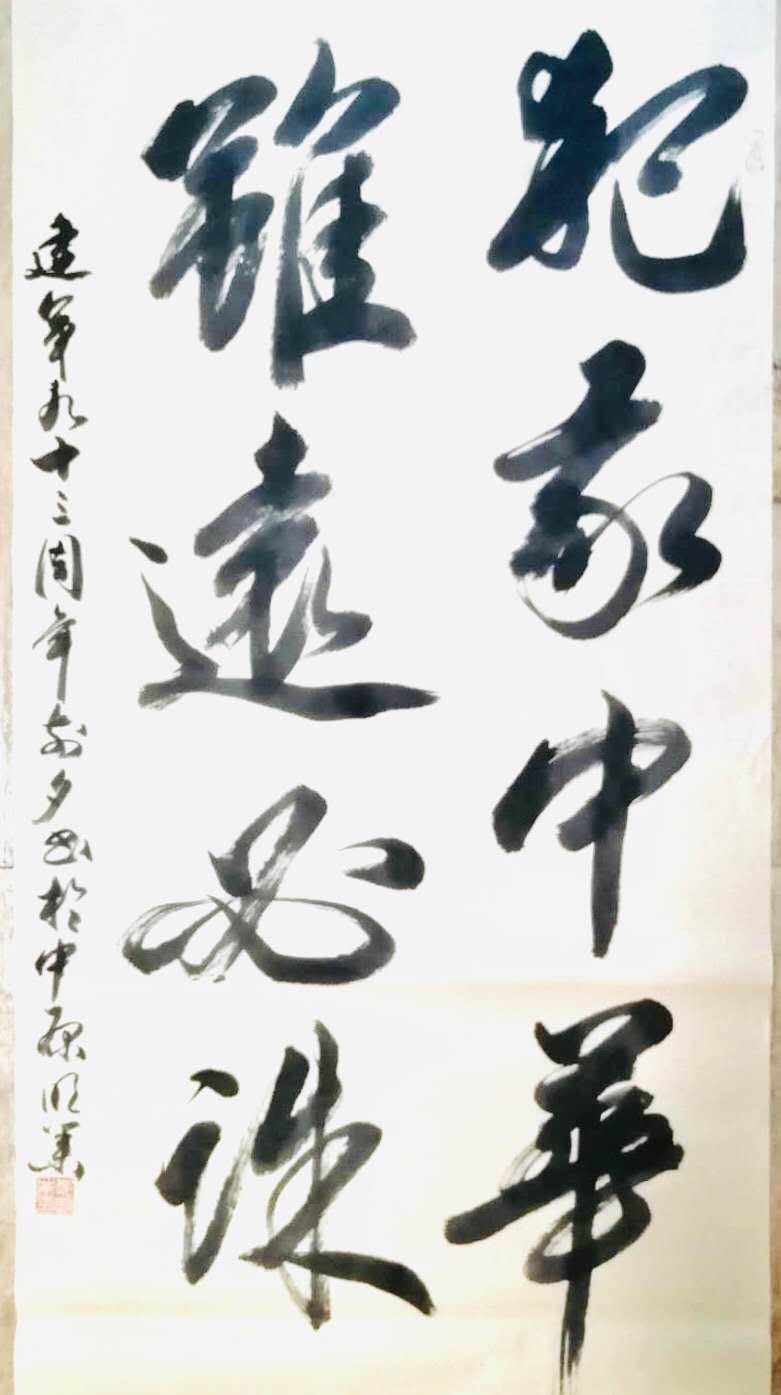 犯我中華
雖遠必誅
建軍九十三周年前夕書於中原